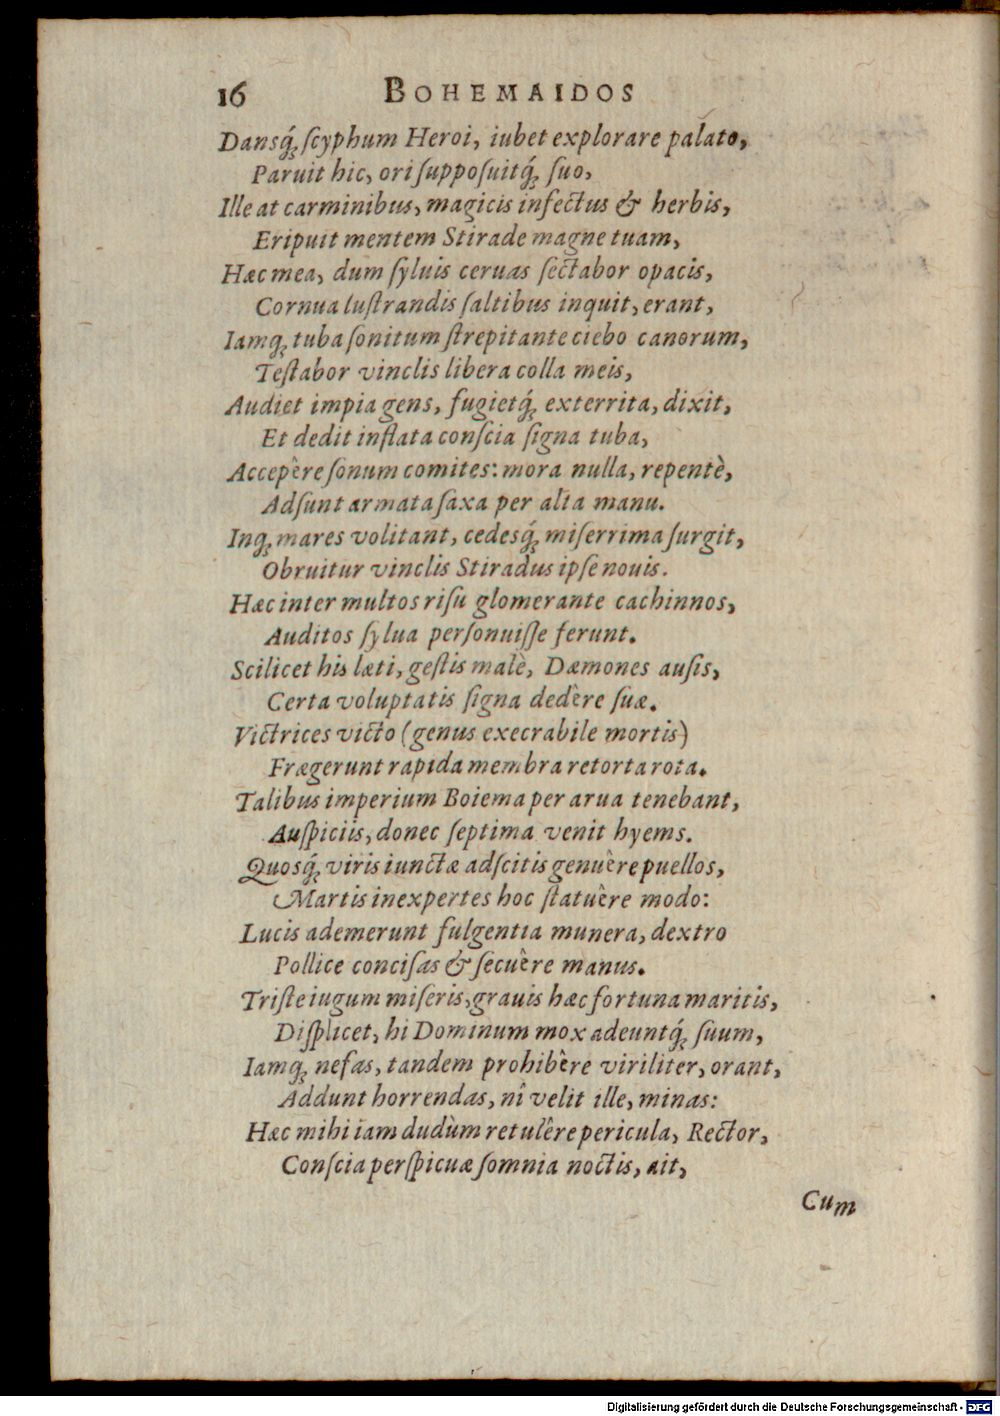 16 BOHEMAIDOS
Dansq́ꝫ ſcyphum Heroi, iubet explorare palato,
Paruit hic, ori ſuppoſuitq́ꝫ ſuo,
Ille at carminibus, magicis infectus & herbis,
Eripuit mentem Stirade magne tuam,
Hæc mea, dum ſyluis ceruas ſectabor opacis,
Cornua luſtrandis ſaltibus inquit, erant,
Iamqꝫ tuba ſonitum ſtrepitante ciebo canorum,
Teſtabor vinclis libera colla meis,
Audiet impia gens, fugietq́ꝫ exterrita, dixit,
Et dedit inflata conſcia ſigna tuba,
Accepêre ſonum comites: mora nulla, repentè,
Adſunt armata ſaxa per alta manu.
Inqꝫ mares volitant, cedesq́ꝫ miſerrima ſurgit,
Obruitur vinclis Stiradus ipſe nouis.
Hæc inter multos riſu glomerante cachinnos,
Auditos ſylua perſonuiſſe ferunt.
Scilicet his læti, geſtis malè, Dæmones auſis,
Certa voluptatis ſigna dedêre ſuæ.
Victrices victo (genus execrabile mortis)
Frægerunt rapida membra retorta rota.
Talibus imperium Boiema per arua tenebant,
Auſpiciis, donec ſeptima venit hyems.
Quosq́ꝫ viris iunctæ adſcitis genuêre puellos,
Martis inexpertes hoc ſtatuêre modo:
Lucis ademerunt fulgentia munera, dextro
Pollice conciſas & ſecuêre manus.
Triſte iugum miſeris, grauis hæc fortuna maritis,
Diſplicet, hi Dominum mox adeuntq́ꝫ ſuum,
Iamqꝫ nefas, tandem prohibêre viriliter, orant,
Addunt horrendas, nî velit ille, minas:
Hæc mihi iam dudùm retulêre pericula, Rector,
Conſcia perſpicuæ ſomnia noctis, ait,
Cum
Digitalisierung gefördert durch die Deutsche Forschungsgemeinschaft - DFG